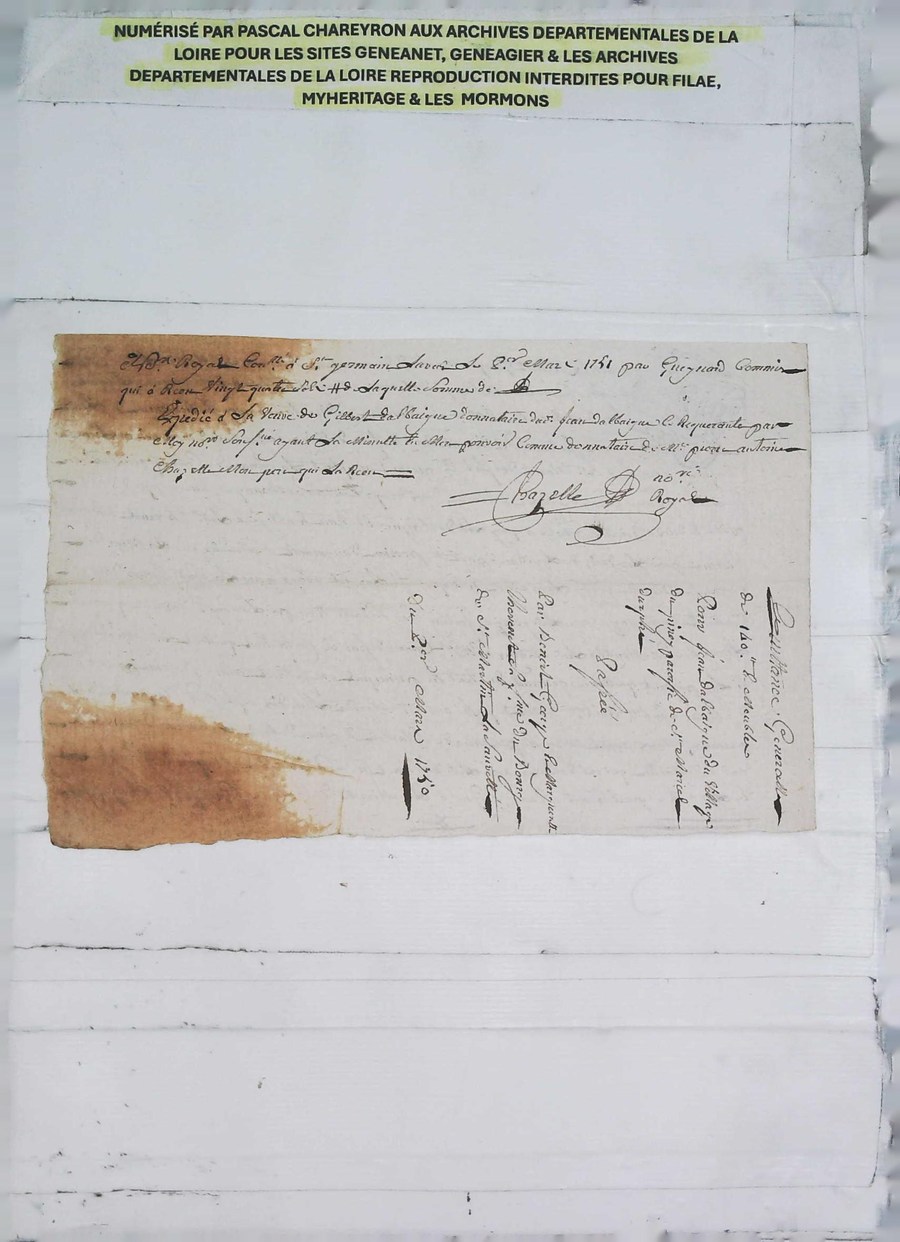 NUMÉRISÉ PAR PASCAL CHAREYRON AUX ARCHIVES DEPARTEMENTALES DE LA
LOIRE POUR LES SITES GENEANET, GENEAGIER & LES ARCHIVES
DEPARTEMENTALES DE LA LOIRE REPRODUCTION INTERDITES POUR FILAE,
MYHERITAGE & LES MORMONS
Royal Con.lle à St. germain Laval le 2.er Mars 1751 par Guignard Commis
qui à Reçu Vingt quatre sols #ds. Laquelle somme de
Expedié à La Veuve de Gilbert dalbaigne donnataire dud. Jean dalbaigne Le Requerante par
moy no.re sous.né ayant La Minutte & Mon pouvoir Comme donnataire de M.e pierre antoine
Chazelle Mon pere qui La Reçu
Chazelle no.re
Royal
Quittance Generalle
de 140.# & Meubles
Pour jean dalbaigne du Village
du pin parroisse de st. Marcel
durphé
Passée
Par Benoist & Marguerite
du Bourg
de St. Martin La Sauveté
Du 2.er Mars 1750